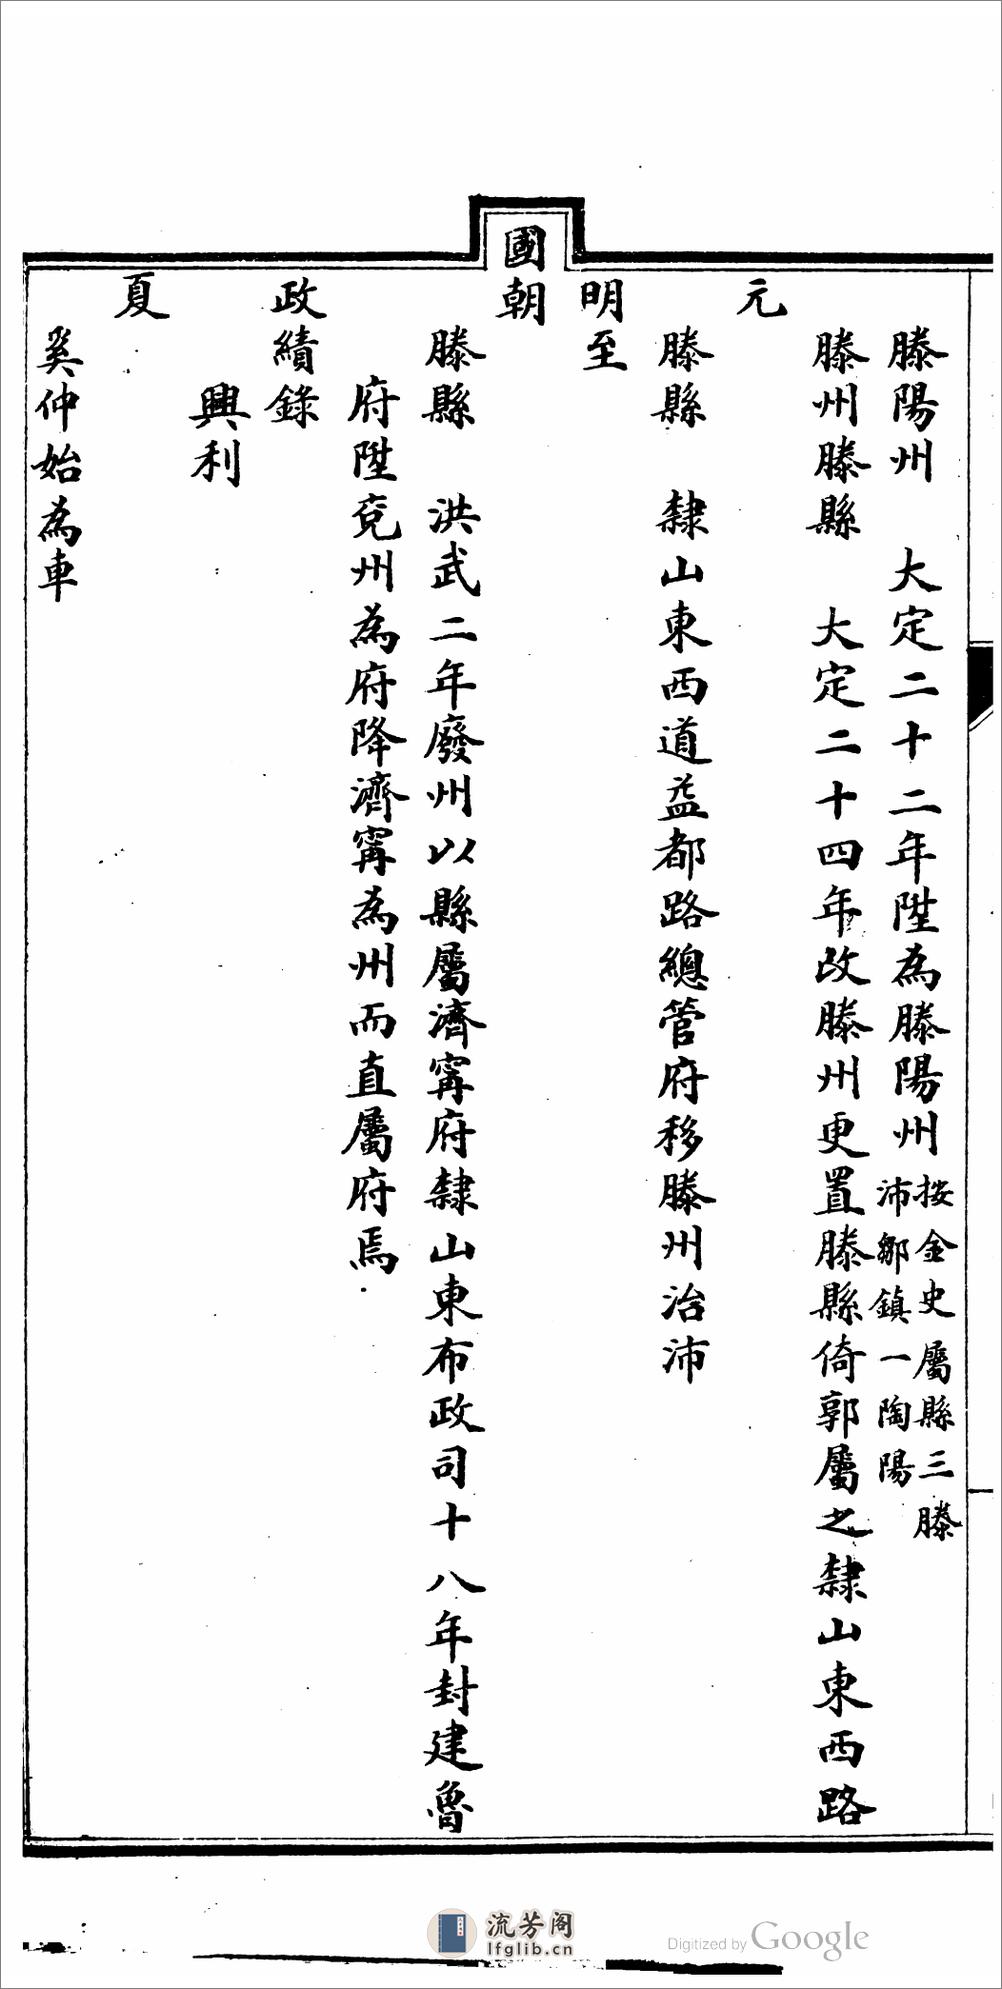 滕陽州　大定二十二年陞為滕陽州按金史屬縣三滕
沛鄒鎮一陶陽
滕州滕縣　大定二十四年改滕州更置滕縣倚郭屬之隸山東西路
元
滕縣　隸山東西道益都路總管府移滕州治沛
明至
國朝
滕縣　洪武二年廢州以縣屬濟寗府隸山東布政司十八年封建魯
府陞兗州為府降濟寗為州而直屬府焉
政績錄
興利
夏
奚仲始為車
流芳阁
lfglib.cn
Digitized by Google